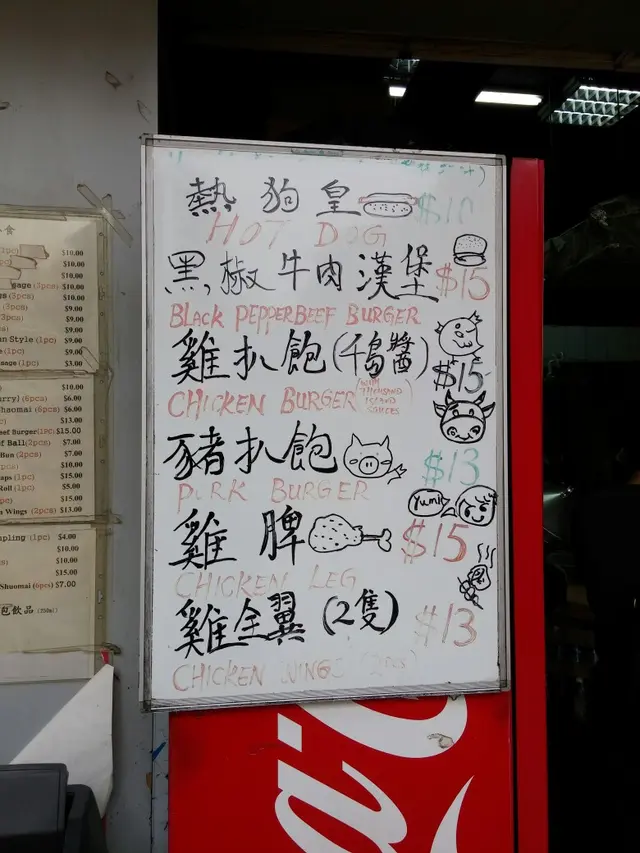 熱狗皇 $10
HOT DOG
黑椒牛肉漢堡 $15
BLACK PEPPER BEEF BURGER
雞扒飽(千島醬) $15
CHICKEN BURGER (WITH THOUSAND ISLAND SAUCES)
豬扒飽 $13
PORK BURGER
Yumi
雞脾 $15
CHICKEN LEG
雞全翼(2隻) $13
CHICKEN WINGS (2pcs)
食
(1pc) $10.00
$10.00
$10.00
sage (3pcs) $10.00
gs (3pcs) $10.00
(3pcs) $9.00
3pcs) $9.00
$9.00
an Style (1pc) $9.00
e (1pc) $9.00
usage (1pc) $3.00
$10.00
urry) (6pcs) $6.00
Shaomai (6pcs) $6.00
c) $13.00
eef Burger(1PC) $15.00
f Ball(2pcs) $7.00
Bun (2pcs) $7.00
pcs) $10.00
aps (1pc) $15.00
Roll (1pc) $5.00
pcs) $15.00
n Wings (2pcs) $13.00
mpling (1pc) $4.00
$10.00
s) $10.00
$15.00
Shuomai (6pcs) $7.00
包飲品 (250ml)